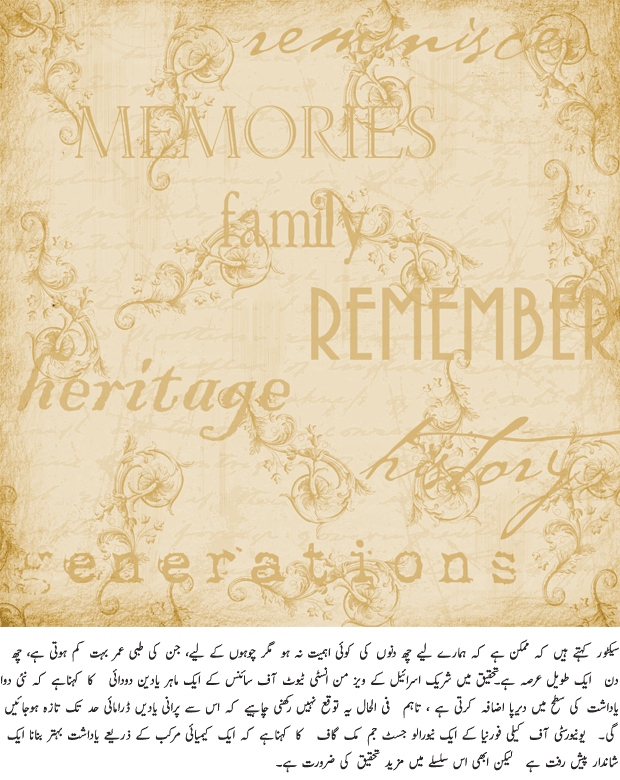 reminisce
MEMORIES
family
REMEMBER
heritage
history
enerations
سیکٹور کہتے ہیں کہ ممکن ہے کہ ہمارے لیے چھ دنوں کی کوئی اہمیت نہ ہو مگر چوہوں کے لیے، جن کی طبی عمر بہت کم ہوتی ہے، چھ
دن ایک طویل عرصہ ہے۔تحقیق میں شریک اسرائیل کے ویز من انسٹی ٹیوٹ آف سائنس کے ایک ماہر یادین دودائی کا کہناہے کہ نئی دوا
یاداشت کی سطح میں دیرپا اضافہ کرتی ہے ، تاہم فی الحال یہ توقع نہیں رکھنی چاہیے کہ اس سے پرانی یادیں ڈرامائی حد تک تازہ ہوجائیں
گی۔ یونیورسٹی آف کیلی فورنیا کے ایک نیورالو جسٹ جم مک گاف کا کہناہے کہ ایک کیمیائی مرکب کے ذریعے یاداشت بہتر بنانا ایک
شاندار پیش رفت ہے لیکن ابھی اس سلسلے میں مزید تحقیق کی ضرورت ہے۔